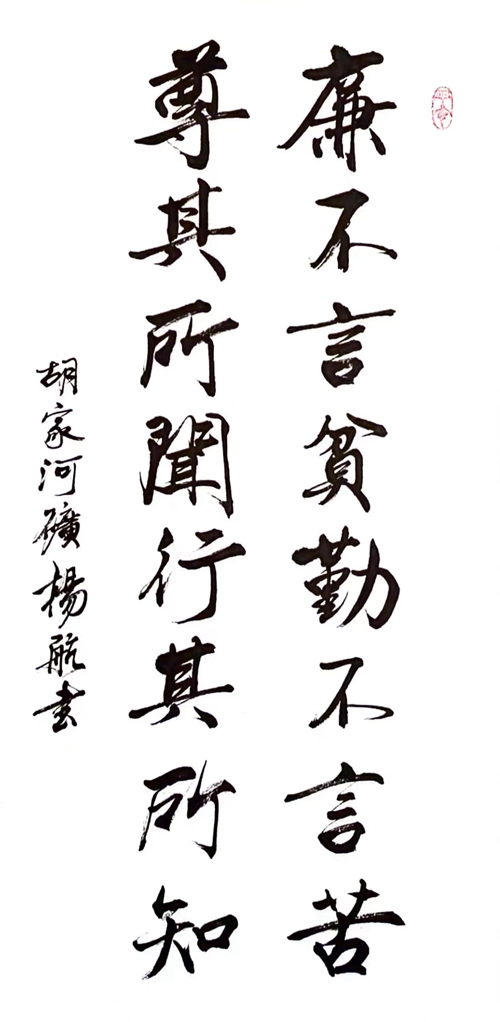 廉不言貧勤不言苦
尊其所聞行其所知
胡家河礦楊航書